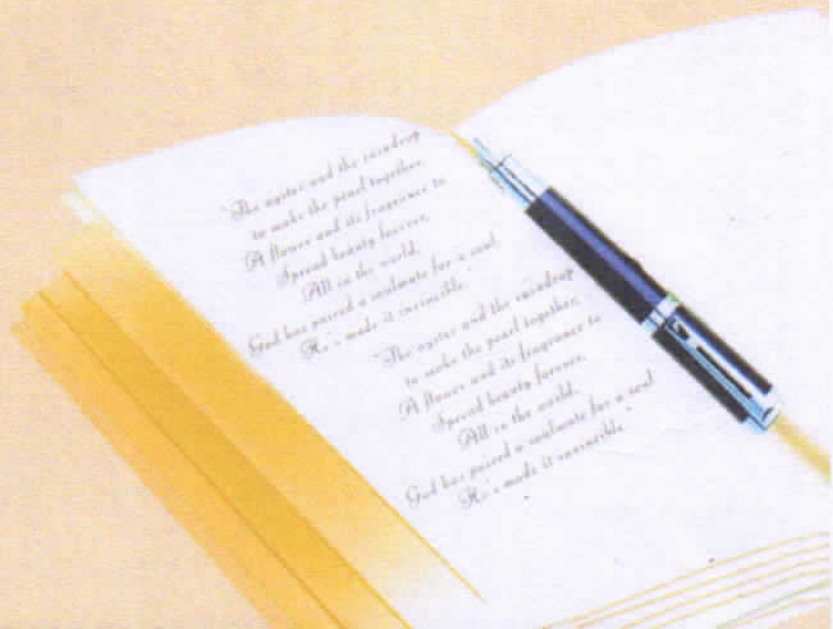 "The oyster and the raindrop
to make the pearl together,
A flower and its fragrance to
Spread beauty forever,
All in the world,
God has paired a soulmate for a soul
He's made it invincible."
The oyster and the raindrop
to make the pearl together,
A flower and its fragrance to
Spread beauty forever,
All in the world,
God has paired a soulmate for a soul
He's made it invincible."